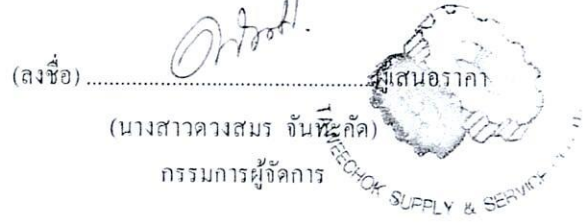 (ลงชื่อ)..............................ผู้เสนอราคา
(นางสาวดวงสมร จันทะคัด)
กรรมการผู้จัดการ
SUPPLY & SERVICE